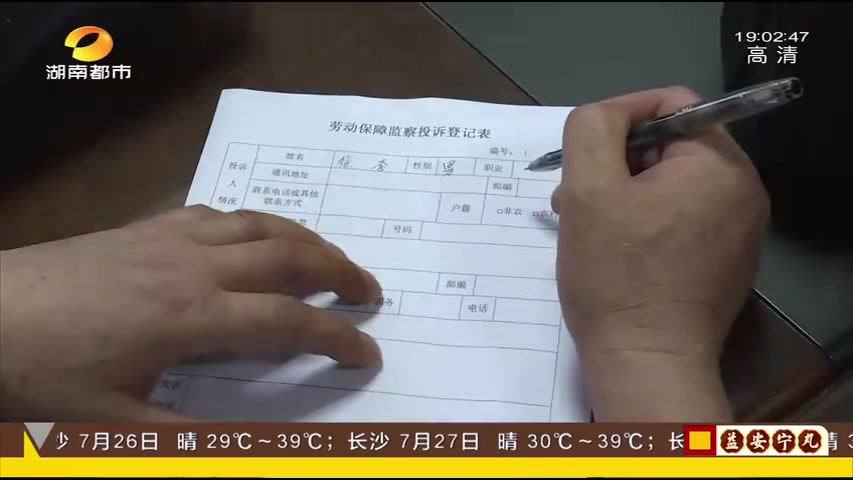 湖南都市
19:02:47
高清
劳动保障监察投诉登记表
编号:
投诉人情况
姓名
性别 男
职业
通讯地址
邮编
联系电话或其他联系方式
户籍
□非农 □农
号码
邮编
电话
投诉
7月26日 晴 29℃~39℃; 长沙 7月27日 晴 30℃~39℃;
益安宁丸